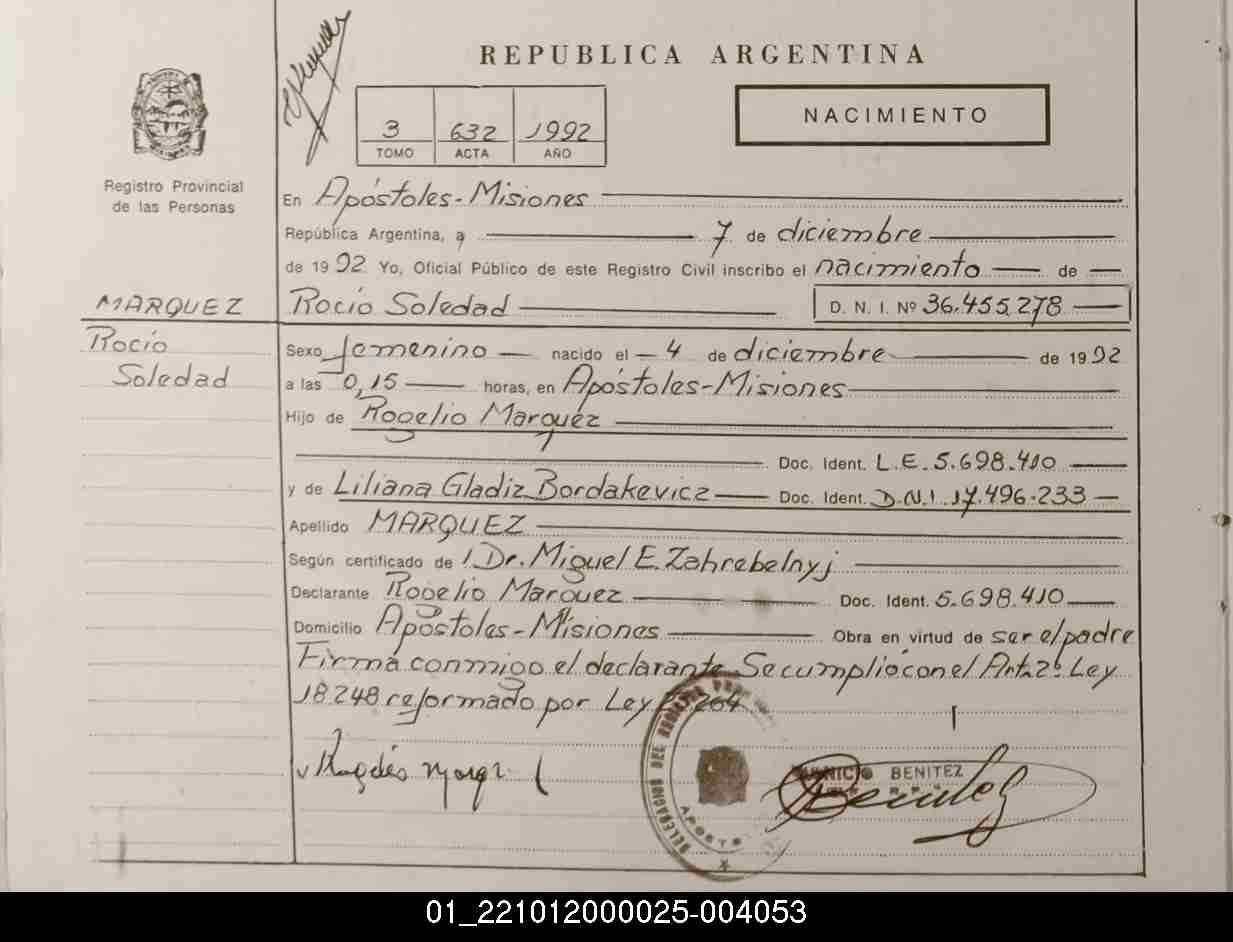 REPUBLICA ARGENTINA
NACIMIENTO
3 632 1992
TOMO ACTA AÑO
Registro Provincial
de las Personas
En Apóstoles-Misiones
República Argentina, a 7 de diciembre
de 1992 Yo, Oficial Público de este Registro Civil inscribo el nacimiento de
MARQUEZ
Rocío Soledad D. N. I. Nº 36.455.278
Rocío
Soledad
Sexo femenino nacido el 4 de diciembre de 1992
a las 0,15 horas, en Apóstoles-Misiones
Hijo de Rogelio Marquez
Doc. Ident. L.E. 5.698.410
y de Liliana Gladiz Bordakevicz Doc. Ident. D.N.I. 17.496.233
Apellido MARQUEZ
Según certificado de Dr. Miguel E. Zahrebelnyj
Declarante Rogelio Marquez Doc. Ident. 5.698.410
Domicilio Apóstoles-Misiones Obra en virtud de ser el padre
Firma conmigo el declarante Se cumplió con el Art. 2º Ley
18248 reformado por Ley 264
DELEGACION DEL REGISTRO
BENITEZ
01_221012000025-004053